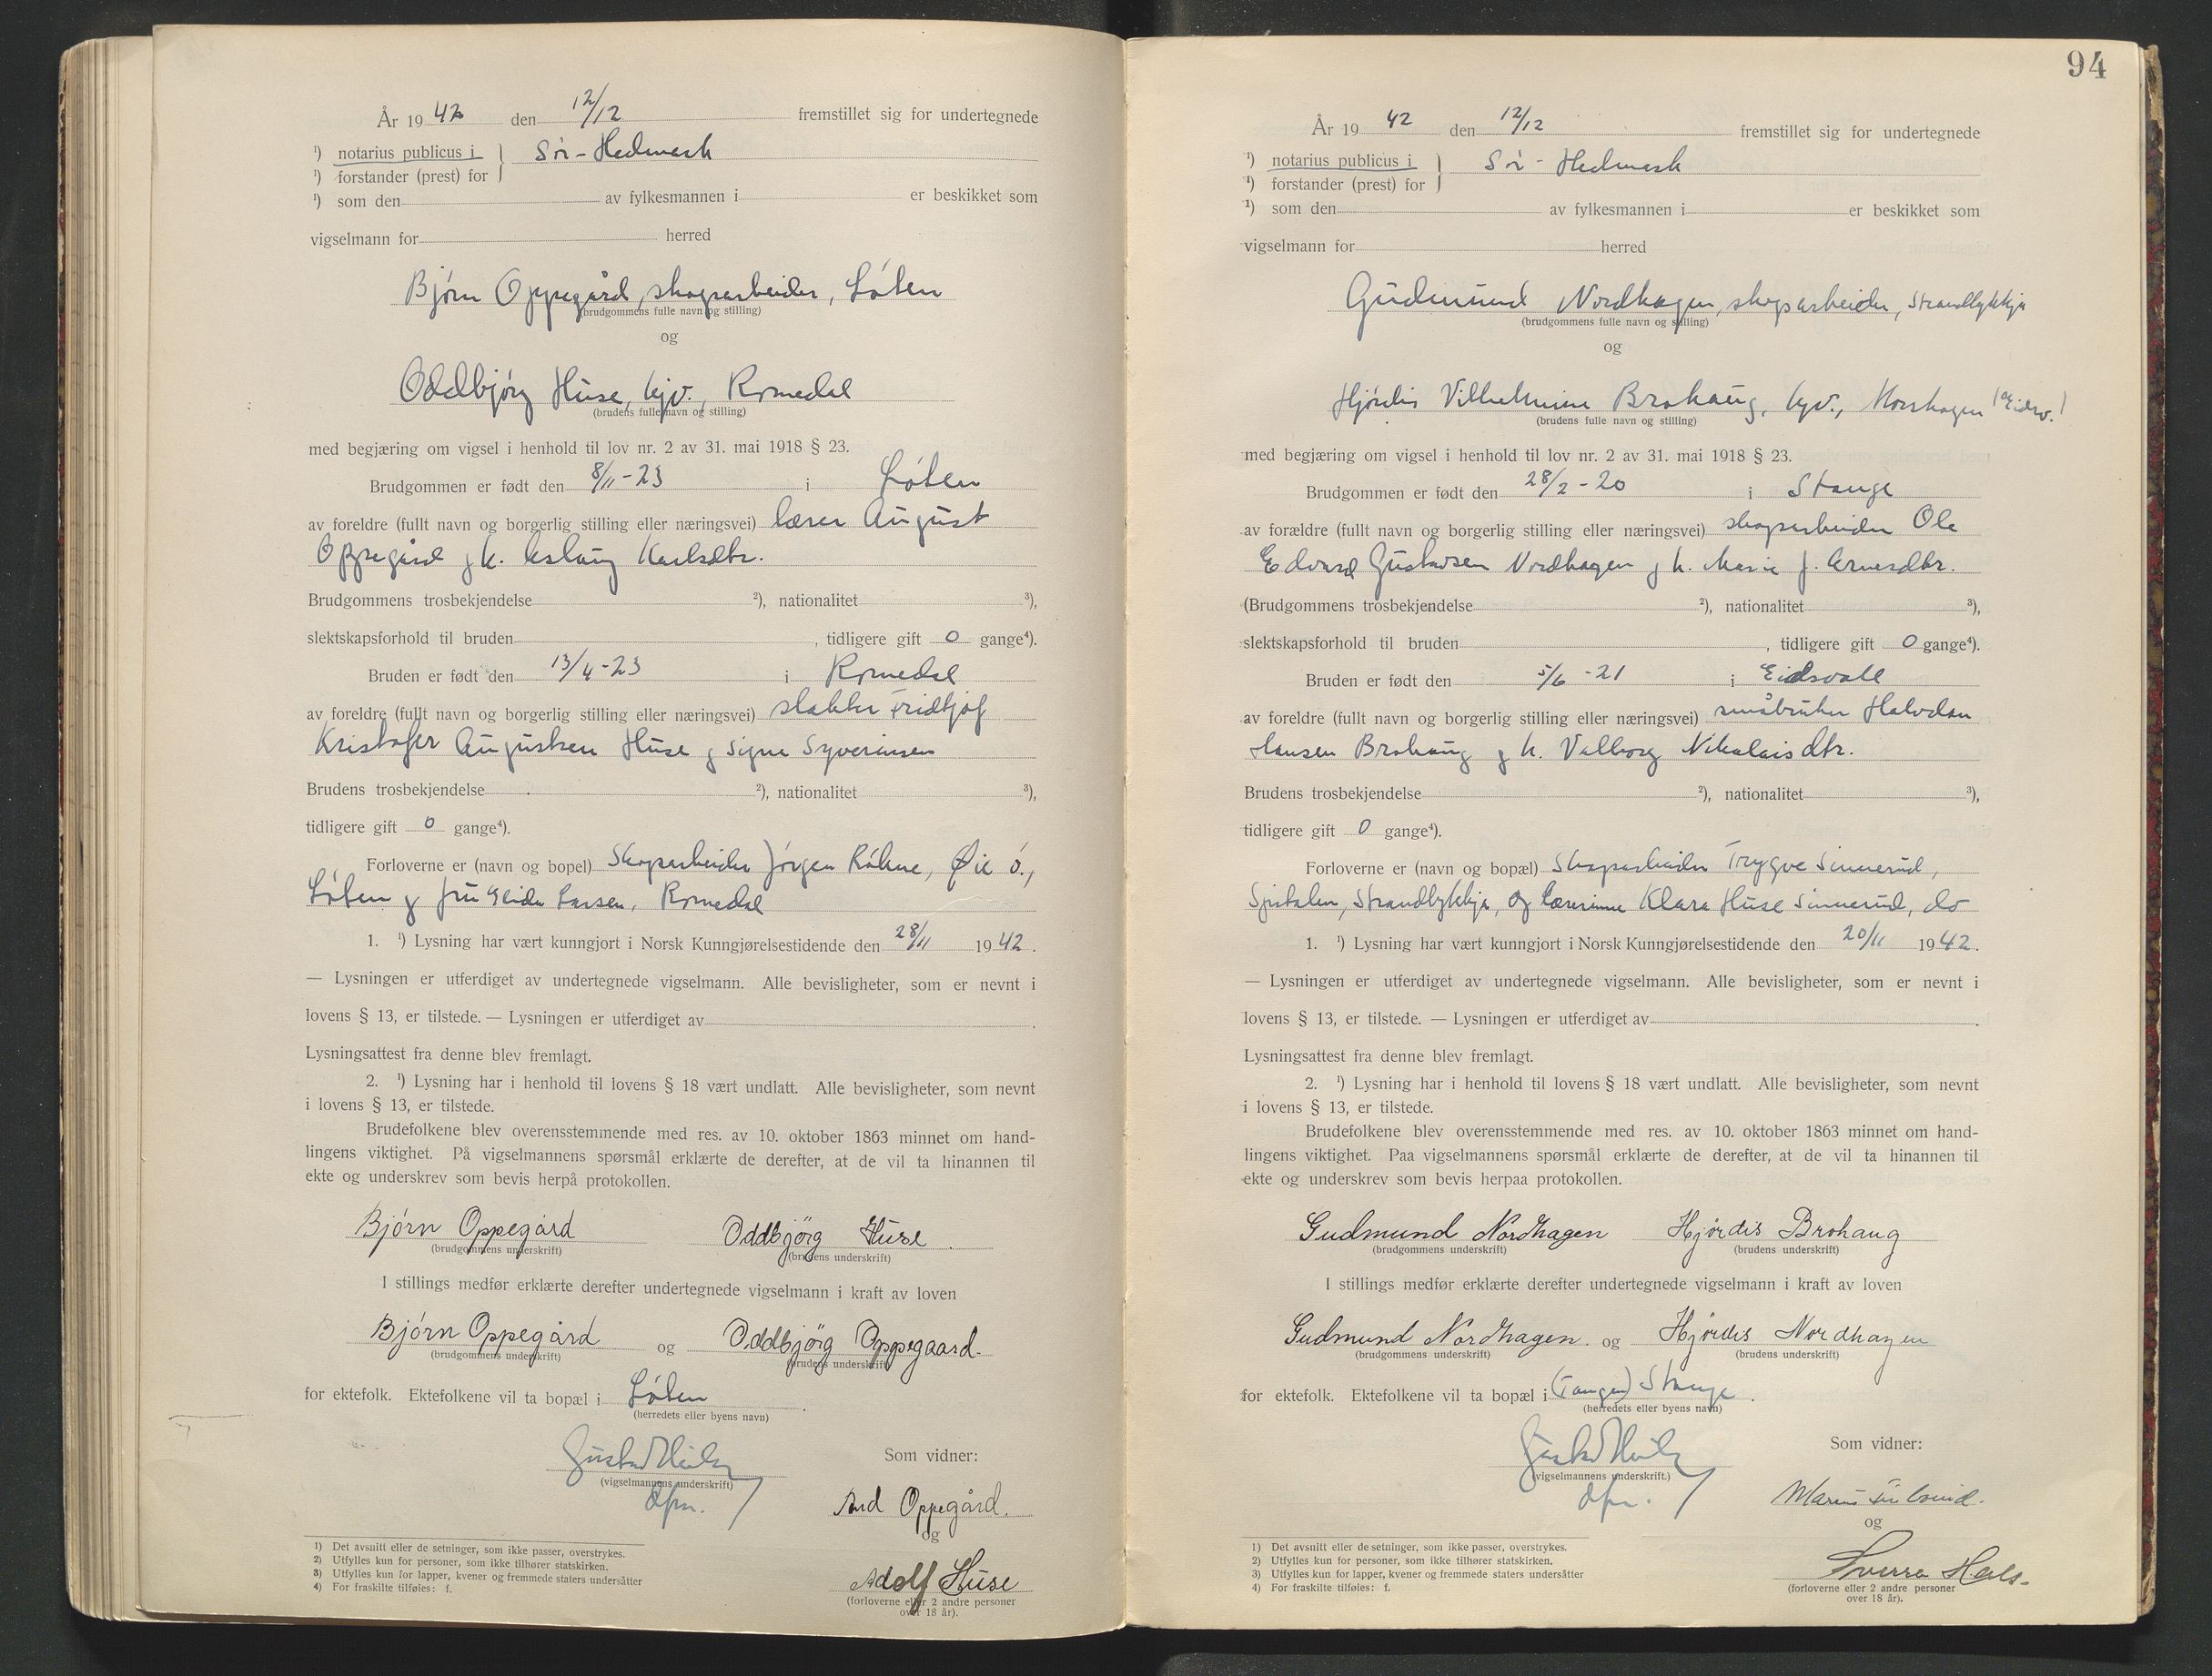 År 1942 den 12/12 fremstillet sig for undertegnede
¹) notarius publicus i } Sør-Hedmark
¹) forstander (prest) for
¹) som den av fylkesmannen i er beskikket som
vigselmann for herred
Bjørn Oppegård, skogsarbeider, Løten
(brudgommens fulle navn og stilling)
og
Oddbjørg Huse, hjv., Romedal
(brudens fulle navn og stilling)
med begjæring om vigsel i henhold til lov nr. 2 av 31. mai 1918 § 23.
Brudgommen er født den 8/11-23 i Løten
av foreldre (fullt navn og borgerlig stilling eller næringsvei) lærer August
Oppegård og h. Aslaug Karlsdtr.
Brudgommens trosbekjendelse ²), nationalitet ³),
slektskapsforhold til bruden , tidligere gift 0 gange⁴).
Bruden er født den 13/4-23 i Romedal
av foreldre (fullt navn og borgerlig stilling eller næringsvei) slakter Fridtjof
Kristofer Augustsen Huse og Signe Syverinsen
Brudens trosbekjendelse ²), nationalitet ³),
tidligere gift 0 gange⁴).
Forloverne er (navn og bopel) Skogsarbeider Jørgen Røhne, Øie ø.,
Løten og fru Larsen, Romedal
1. ¹) Lysning har vært kunngjort i Norsk Kunngjørelsestidende den 28/11 1942.
— Lysningen er utferdiget av undertegnede vigselmann. Alle bevisligheter, som er nevnt i
lovens § 13, er tilstede. — Lysningen er utferdiget av .
Lysningsattest fra denne blev fremlagt.
2. ¹) Lysning har i henhold til lovens § 18 vært undlatt. Alle bevisligheter, som nevnt
i lovens § 13, er tilstede.
Brudefolkene blev overensstemmende med res. av 10. oktober 1863 minnet om hand-
lingens viktighet. På vigselmannens spørsmål erklærte de derefter, at de vil ta hinannen til
ekte og underskrev som bevis herpå protokollen.
Bjørn Oppegård Oddbjörg Huse
(brudgommens underskrift) (brudens underskrift)
I stillings medfør erklærte derefter undertegnede vigselmann i kraft av loven
Bjørn Oppegård og Oddbjörg Oppegaard.
(brudgommens underskrift) (brudens underskrift)
for ektefolk. Ektefolkene vil ta bopæl i Løten .
(herredets eller byens navn)
Som vidner:
(vigselmannens underskrift)
dfm.
Oppegård.
og
Adolf Huse
(forloverne eller 2 andre personer
over 18 år).
1) Det avsnitt eller de setninger, som ikke passer, overstrykes.
2) Utfylles kun for personer, som ikke tilhører statskirken.
3) Utfylles kun for lapper, kvener og fremmede staters undersåtter
4) For fraskilte tilføies: f.
94
År 1942 den 12/12 fremstillet sig for undertegnede
¹) notarius publicus i } Sør-Hedmark
¹) forstander (prest) for
¹) som den av fylkesmannen i er beskikket som
vigselmann for herred
Gudmund Nordhagen, skogsarbeider, Strandlykkja
(brudgommens fulle navn og stilling)
og
Hjørdis Vilhelmine Brohaug, hjv., Morshagen (Eidsv.)
(brudens fulle navn og stilling)
med begjæring om vigsel i henhold til lov nr. 2 av 31. mai 1918 § 23.
Brudgommen er født den 28/2-20 i Stange
av forældre (fullt navn og borgerlig stilling eller næringsvei) skogsarbeider Ole
Edvard Gustavsen Nordhagen og h. Marie f. Arnesdtr.
(Brudgommens trosbekjendelse ²), nationalitet ³),
slektskapsforhold til bruden , tidligere gift 0 gange⁴).
Bruden er født den 5/6-21 i Eidsvoll
av foreldre (fullt navn og borgerlig stilling eller næringsvei) småbruker Halvdan
Hansen Brohaug og h. Valborg Nikolaisdtr.
Brudens trosbekjendelse ²), nationalitet ³),
tidligere gift 0 gange⁴).
Forloverne er (navn og bopæl) Skogsarbeider Trygve Sinnerud,
Spitalen, Strandlykkja, og lærerinne Klara Huse Sinnerud, do
1. ¹) Lysning har vært kunngjort i Norsk Kunngjørelsestidende den 20/11 1942.
— Lysningen er utferdiget av undertegnede vigselmann. Alle bevisligheter, som er nevnt i
lovens § 13, er tilstede. — Lysningen er utferdiget av .
Lysningsattest fra denne blev fremlagt.
2. ¹) Lysning har i henhold til lovens § 18 vært undlatt. Alle bevisligheter, som nevnt
i lovens § 13, er tilstede.
Brudefolkene blev overensstemmende med res. av 10. oktober 1863 minnet om hand-
lingens viktighet. Paa vigselmannens spørsmål erklærte de derefter, at de vil ta hinannen til
ekte og underskrev som bevis herpaa protokollen.
Gudmund Nordhagen Hjørdis Brohaug
(brudgommens underskrift) (brudens underskrift)
I stillings medfør erklærte derefter undertegnede vigselmann i kraft av loven
Gudmund Nordhagen. og Hjørdis Nordhagen
(brudgommens underskrift) (brudens underskrift)
for ektefolk. Ektefolkene vil ta bopæl i (Tangen) Stange .
(herredets eller byens navn)
Som vidner:
(vigselmannens underskrift.)
dfm.
og
Sverre Hals.
(forloverne eller 2 andre personer
over 18 år).
1) Det avsnitt eller de setninger, som ikke passer, overstrykes.
2) Utfylles kun for personer, som ikke tilhører statskirken.
3) Utfylles kun for lapper, kvener og fremmede staters undersåtter
4) For fraskilte tilføies: f.